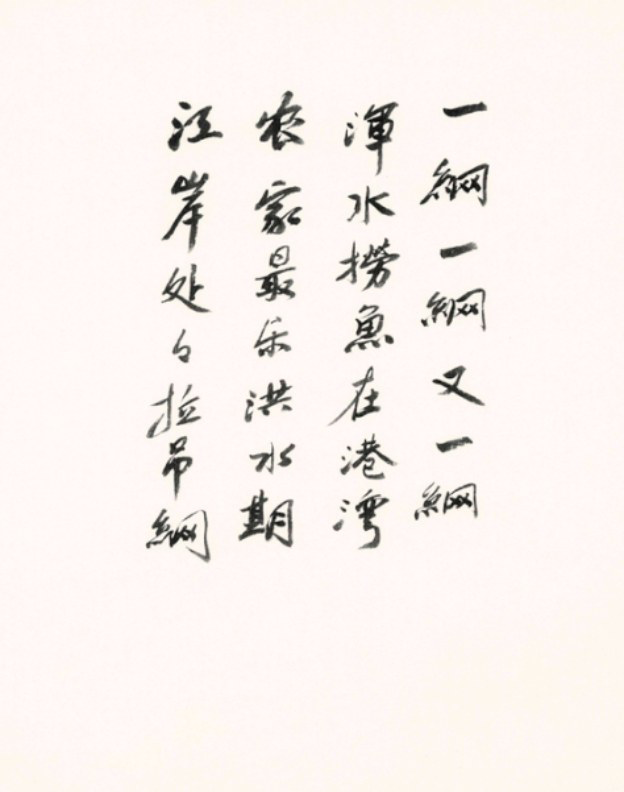 一網一網又一網
渾水撈魚在港灣
农家最乐洪水期
江岸处々拉吊網